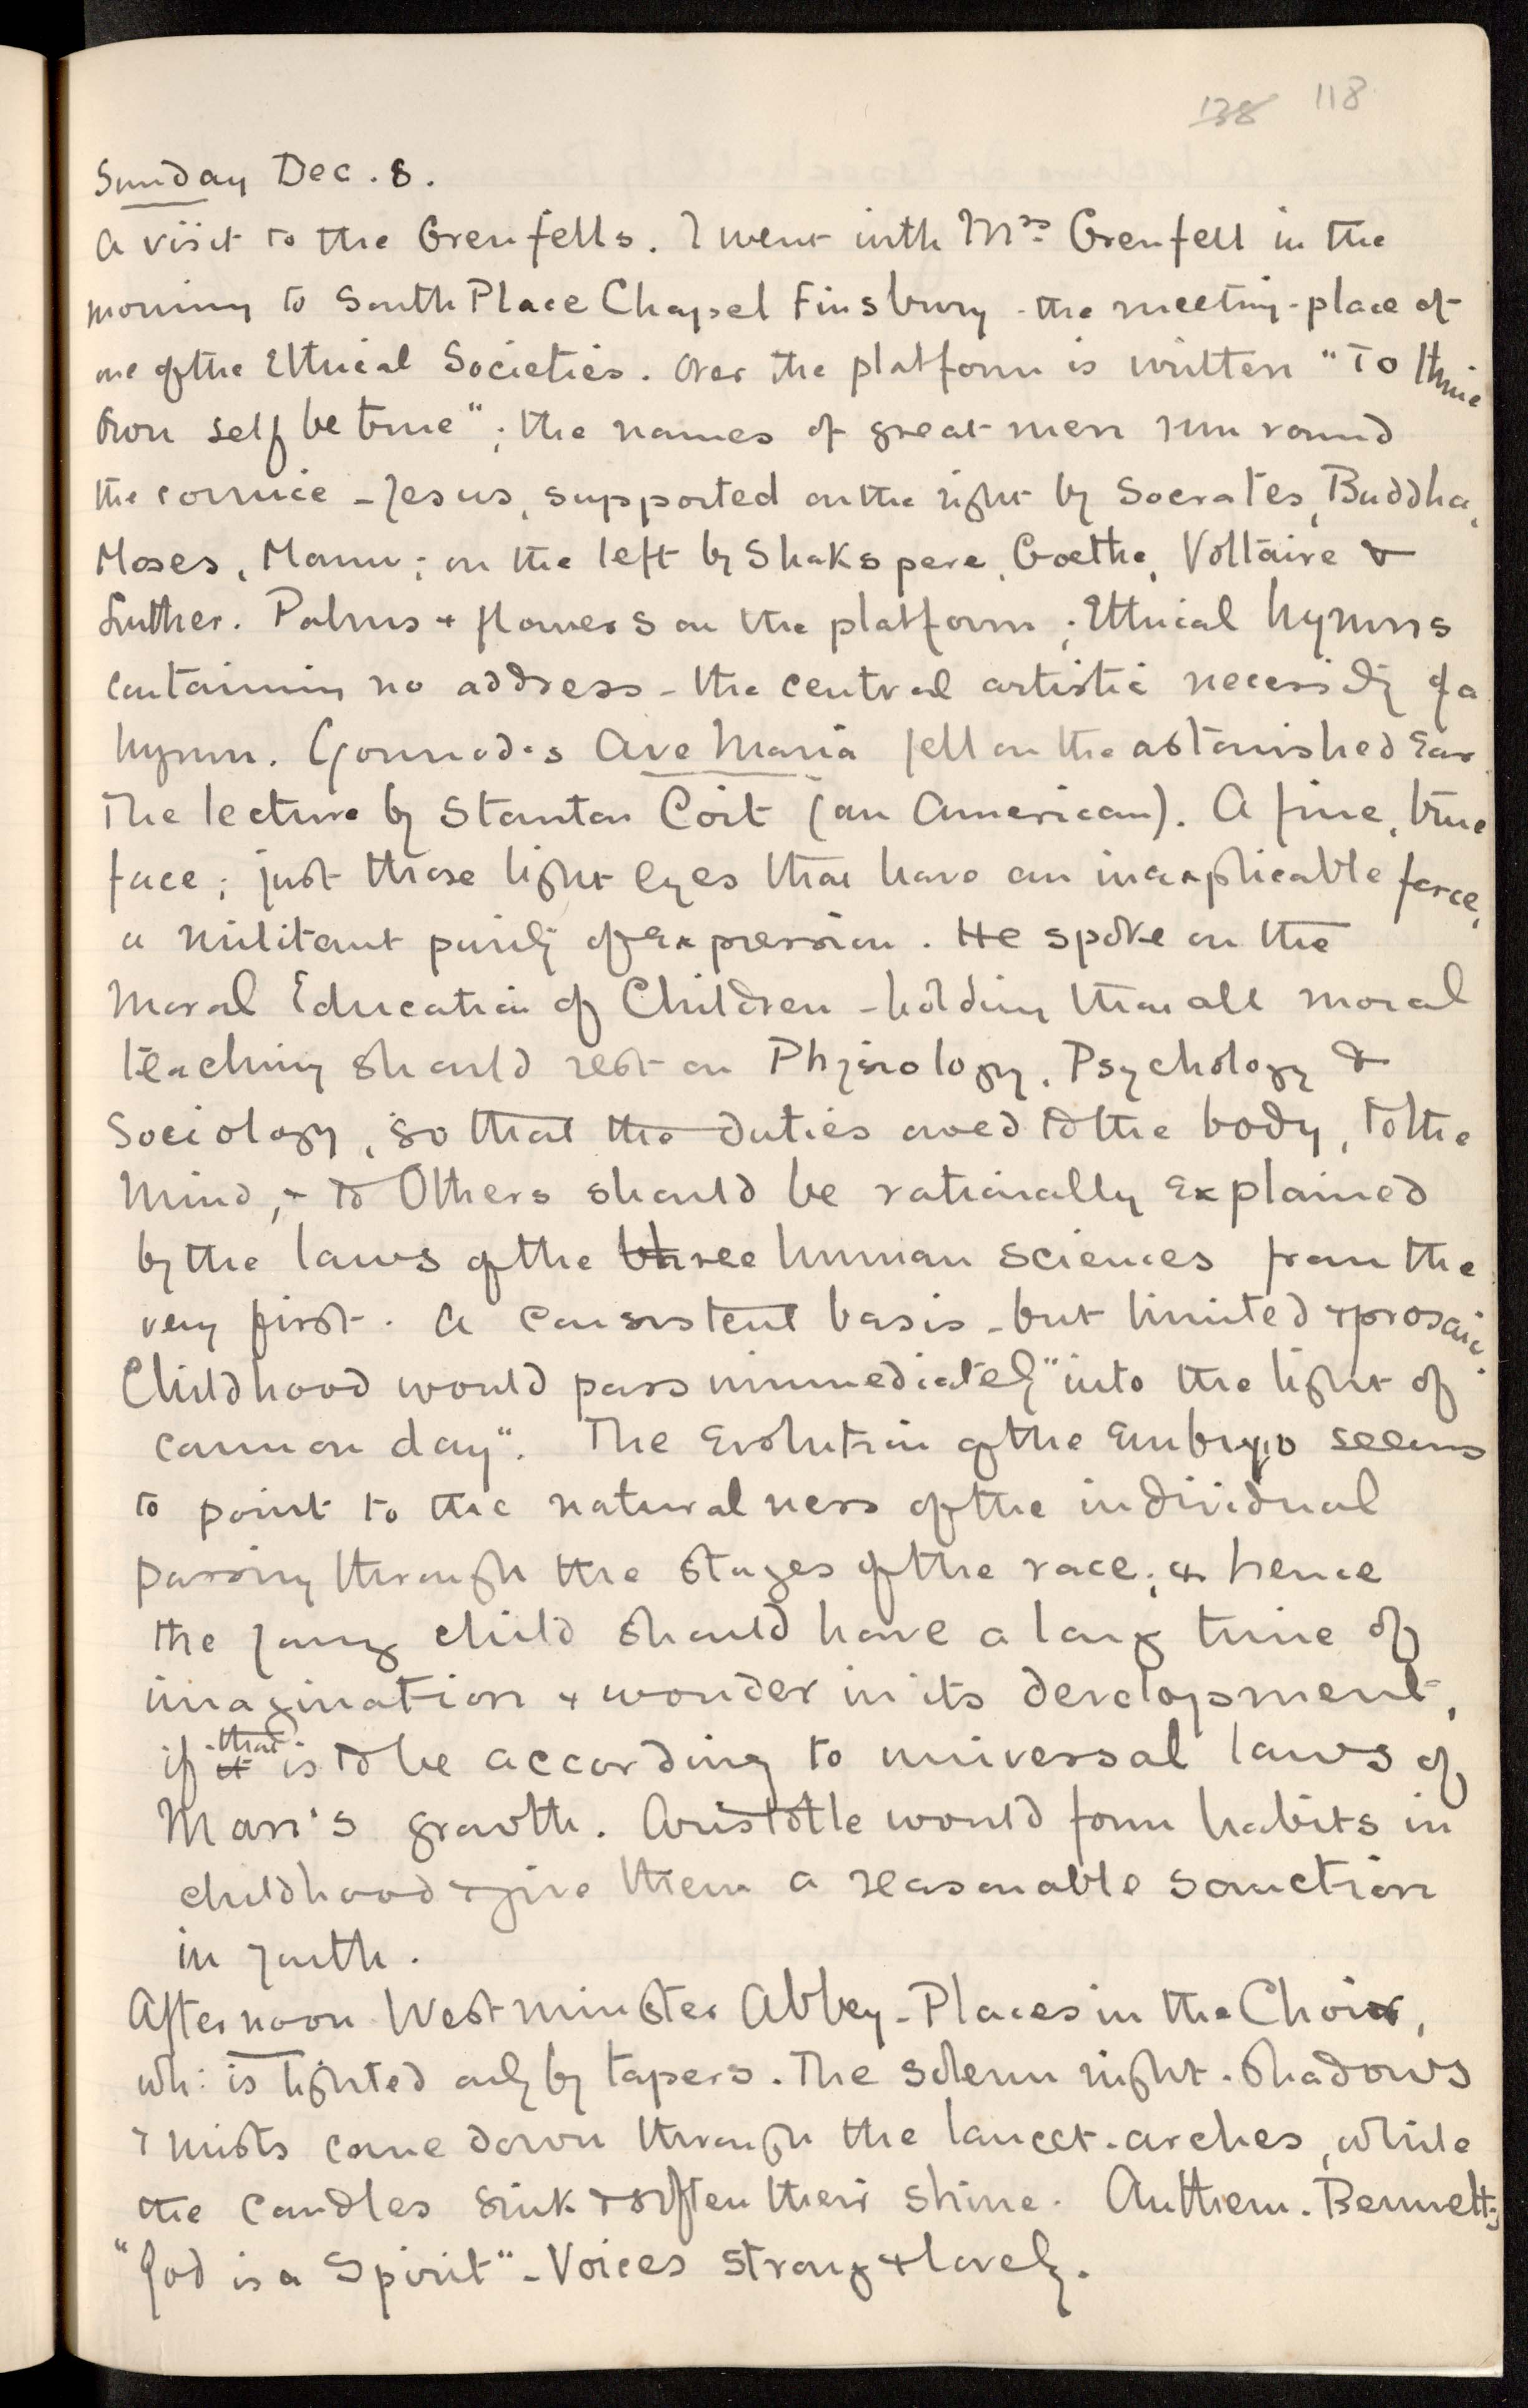 138 118
Sunday Dec. 8.
A visit to the Grenfells. I went with Mrs Grenfell in the
morning to South Place Chapel Finsbury - the meeting-place of
one of the Ethical Societies. Over the platform is written "To thine
Own self be true"; the names of great men run round
the cornice - Jesus, supported on the right by Socrates, Buddha,
Moses, Manu; on the left by Shakspere, Goethe, Voltaire &
Luther. Palms & flowers on the platform; Ethical hymns
containing no address - the central artistic necessity of a
hymn. Gounod's Ave Maria fell on the astonished Ear.
The lecture by Stanton Coit (an American). A fine, true
face; just those light eyes that have an inexplicable force,
a militant purity of expression. He spoke on the
Moral Education of Children - holding that all moral
teaching should rest on Physiology, Psychology &
Sociology, so that the duties owed to the body, to the
Mind, & to Others should be rationally Explained
by the laws of the three human sciences from the
very first. A consistent basis - but limited & prosaic.
Childhood would pass immediately "into the light of
common day". The Evolution of the Embryo seems
to point to the naturalness of the individual
passing through the stages of the race; & hence
the young child should have a long time of
imagination & wonder in its development,
if it that is to be according to universal laws of
Man's growth. Aristotle would form habits in
childhood & give them a reasonable sanction
in youth.
Afternoon Westminster Abbey - Places in the Choir,
wh: is lighted only by tapers. The solemn night-shadows
& mists come down through the lancet-arches, while
the candles sink & soften their shine. Anthem. Bennett's
"God is a Spirit" - Voices strong & lovely.